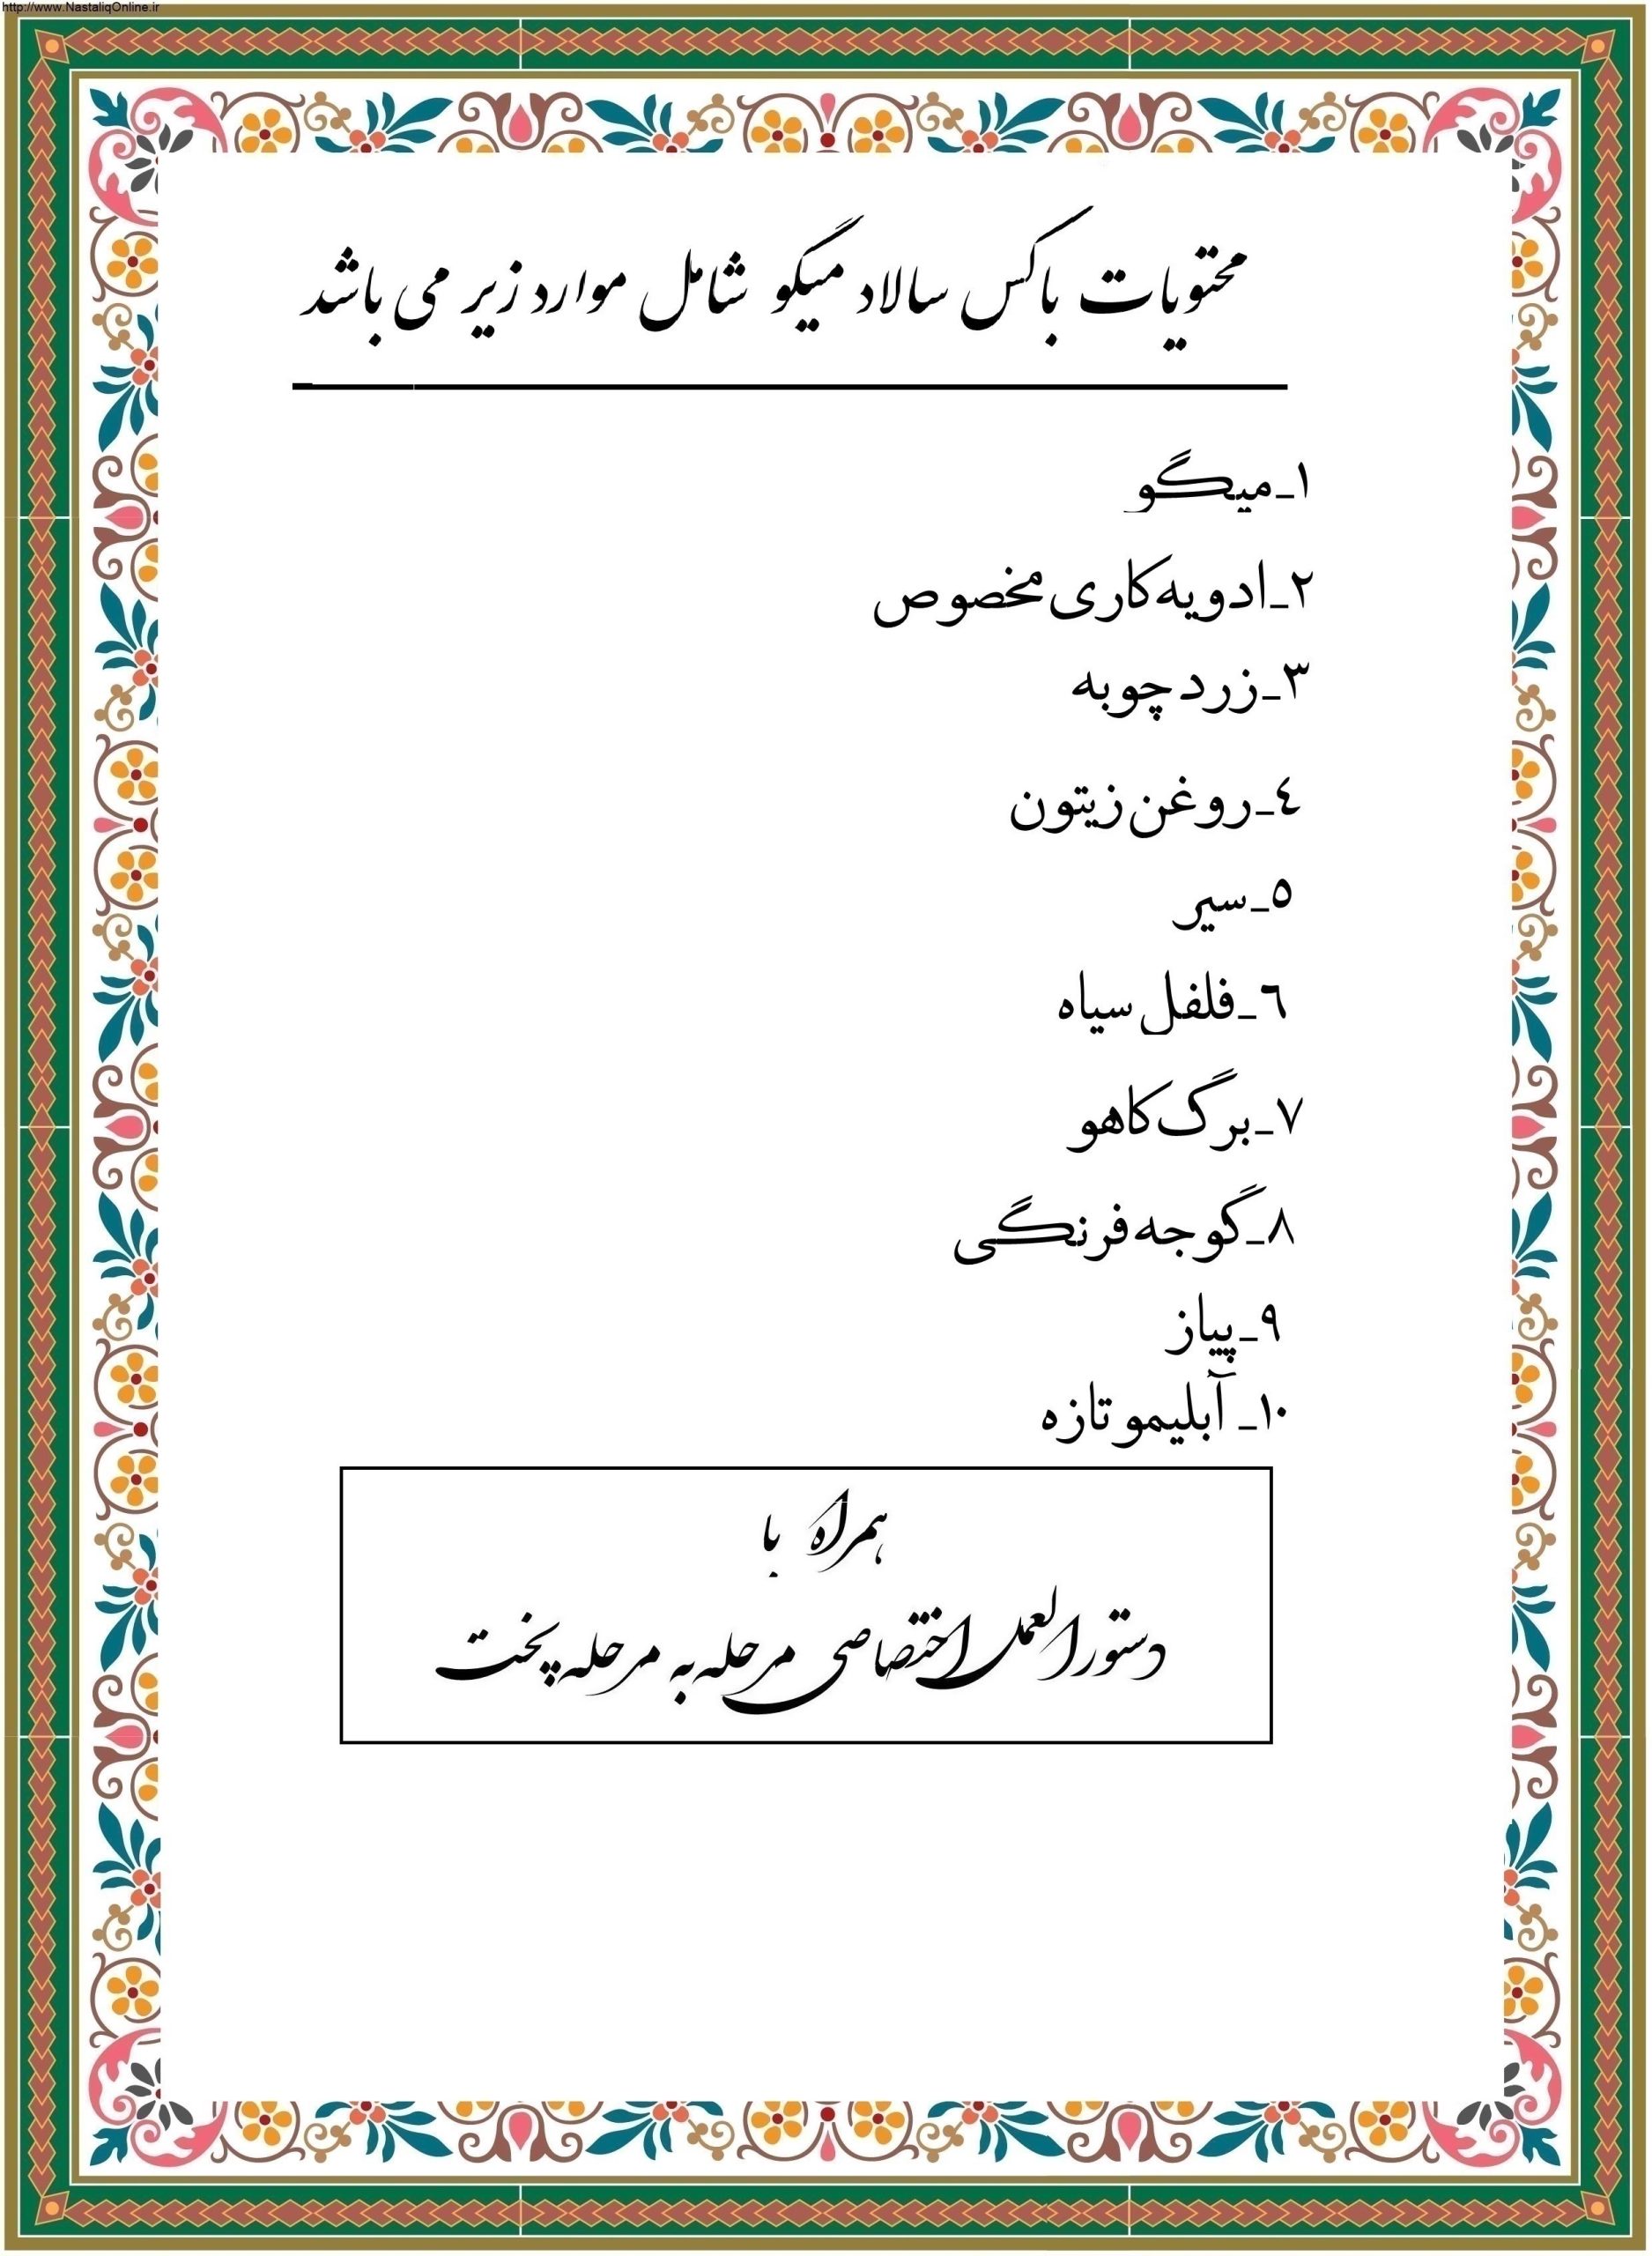 http://www.NastaliqOnline.ir
محتویات باکس سالاد میگو شامل موارد زیر می باشد
١_میگو
٢_ادویه کاری مخصوص
٣_زردچوبه
٤_روغن زیتون
٥_سیر
٦_فلفل سیاه
٧_برگ کاهو
٨_گوجه فرنگی
٩_پیاز
١٠_ آبلیمو تازه
همراه با
دستورالعمل اختصاصی مرحله به مرحله پخت